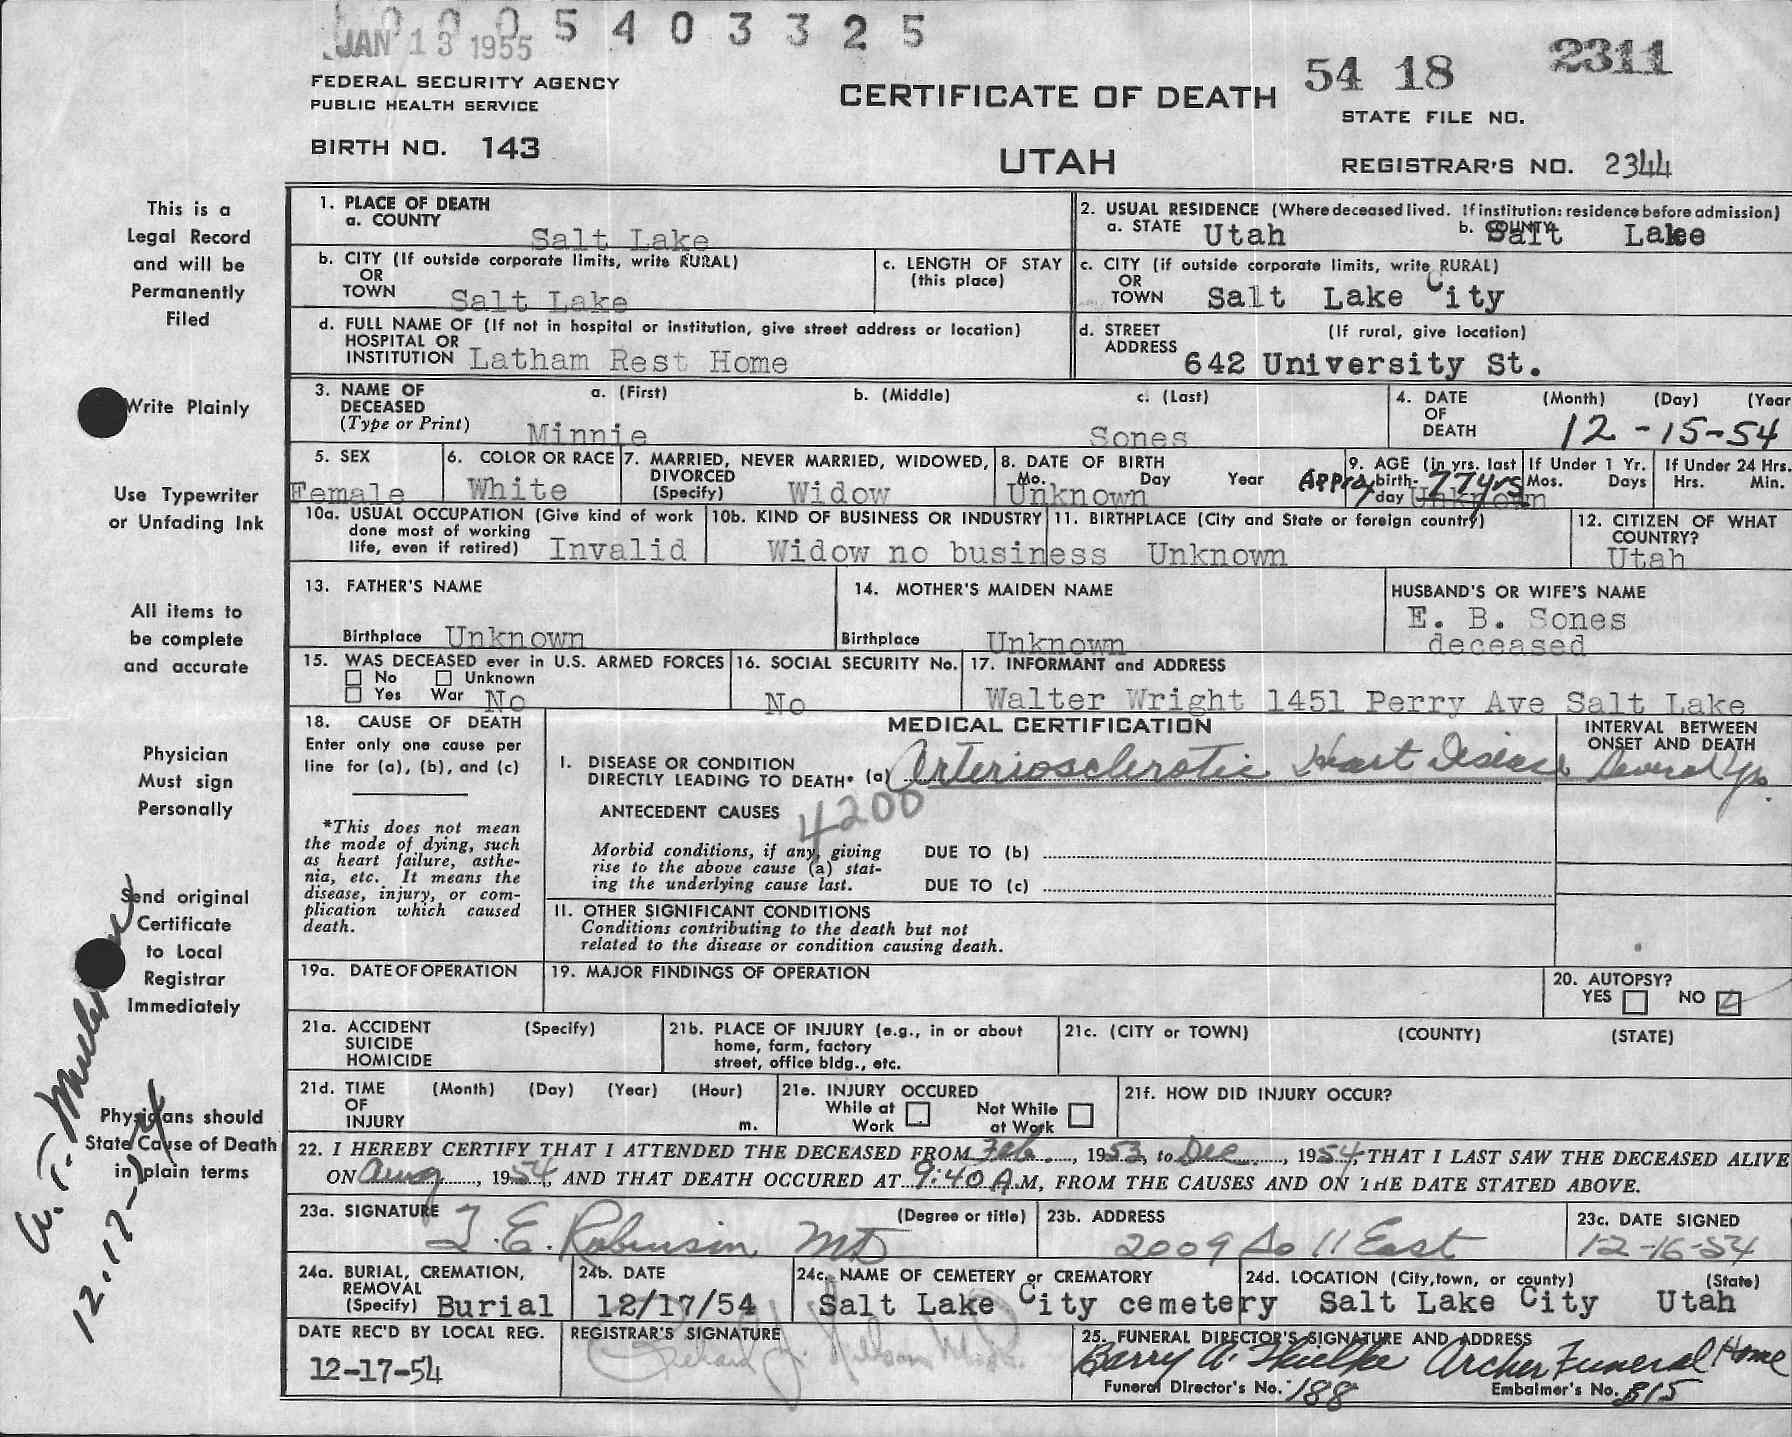 JAN 13 1955
0 0 0 5 4 0 3 3 2 5
FEDERAL SECURITY AGENCY
PUBLIC HEALTH SERVICE
BIRTH NO. 143
CERTIFICATE OF DEATH
UTAH
54 18 2311
STATE FILE NO.
REGISTRAR'S NO. 2344
This is a
Legal Record
and will be
Permanently
Filed
Write Plainly
Use Typewriter
or Unfading Ink
All items to
be complete
and accurate
Physician
Must sign
Personally
Send original
Certificate
to Local
Registrar
Immediately
Physicians should
State Cause of Death
in plain terms
12-17-54
1. PLACE OF DEATH
a. COUNTY
Salt Lake
2. USUAL RESIDENCE (Where deceased lived. If institution: residence before admission)
a. STATE Utah b. COUNTY Salt Lake
b. CITY (If outside corporate limits, write RURAL)
OR
TOWN Salt Lake
c. LENGTH OF STAY
(this place)
c. CITY (if outside corporate limits, write RURAL)
OR
TOWN Salt Lake City
d. FULL NAME OF (If not in hospital or institution, give street address or location)
HOSPITAL OR
INSTITUTION Latham Rest Home
d. STREET (If rural, give location)
ADDRESS 642 University St.
3. NAME OF DECEASED (Type or Print)
a. (First) b. (Middle) c. (Last)
Minnie Sones
4. DATE OF DEATH (Month) (Day) (Year
12-15-54
5. SEX
Female
6. COLOR OR RACE
White
7. MARRIED, NEVER MARRIED, WIDOWED,
DIVORCED
(Specify) Widow
8. DATE OF BIRTH
Mo. Day Year
Unknown
9. AGE (in yrs. last birthday
Approx 77 yrs
Unknown
If Under 1 Yr.
Mos. Days
If Under 24 Hrs.
Hrs. Min.
10a. USUAL OCCUPATION (Give kind of work
done most of working
life, even if retired) Invalid
10b. KIND OF BUSINESS OR INDUSTRY
Widow no business
11. BIRTHPLACE (City and State or foreign country)
Unknown
12. CITIZEN OF WHAT
COUNTRY?
Utah
13. FATHER'S NAME
Birthplace Unknown
14. MOTHER'S MAIDEN NAME
Birthplace Unknown
HUSBAND'S OR WIFE'S NAME
E. B. Sones
deceased
15. WAS DECEASED ever in U.S. ARMED FORCES
No Unknown
Yes War No
16. SOCIAL SECURITY No.
No
17. INFORMANT and ADDRESS
Walter Wright 1451 Perry Ave Salt Lake
18. CAUSE OF DEATH
Enter only one cause per
line for (a), (b), and (c)
*This does not mean
the mode of dying, such
as heart failure, asthe-
nia, etc. It means the
disease, injury, or com-
plication which caused
death.
MEDICAL CERTIFICATION
INTERVAL BETWEEN
ONSET AND DEATH
I. DISEASE OR CONDITION
DIRECTLY LEADING TO DEATH* (a) Arteriosclerotic Heart Disease Several yrs.
4200
ANTECEDENT CAUSES
Morbid conditions, if any, giving
rise to the above cause (a) stat-
ing the underlying cause last.
DUE TO (b)
DUE TO (c)
II. OTHER SIGNIFICANT CONDITIONS
Conditions contributing to the death but not
related to the disease or condition causing death.
19a. DATE OF OPERATION
19. MAJOR FINDINGS OF OPERATION
20. AUTOPSY?
YES NO
21a. ACCIDENT (Specify)
SUICIDE
HOMICIDE
21b. PLACE OF INJURY (e.g., in or about
home, farm, factory
street, office bldg., etc.
21c. (CITY or TOWN) (COUNTY) (STATE)
21d. TIME (Month) (Day) (Year) (Hour)
OF
INJURY m.
21e. INJURY OCCURED
While at Work
Not While at Work
21f. HOW DID INJURY OCCUR?
22. I HEREBY CERTIFY THAT I ATTENDED THE DECEASED FROM Feb, 1953, to Dec, 1954, THAT I LAST SAW THE DECEASED ALIVE
ON Aug, 1954, AND THAT DEATH OCCURED AT 9:40 A.M, FROM THE CAUSES AND ON THE DATE STATED ABOVE.
23a. SIGNATURE (Degree or title)
E. Robinson MD
23b. ADDRESS
2009 So 11 East
23c. DATE SIGNED
12-16-54
24a. BURIAL, CREMATION,
REMOVAL
(Specify) Burial
24b. DATE
12/17/54
24c. NAME OF CEMETERY or CREMATORY
Salt Lake City cemetery
24d. LOCATION (City, town, or county) (State)
Salt Lake City Utah
DATE REC'D BY LOCAL REG.
12-17-54
REGISTRAR'S SIGNATURE
25. FUNERAL DIRECTOR'S SIGNATURE AND ADDRESS
Barry A. Archer Funeral Home
Funeral Director's No. 188
Embalmer's No. 815